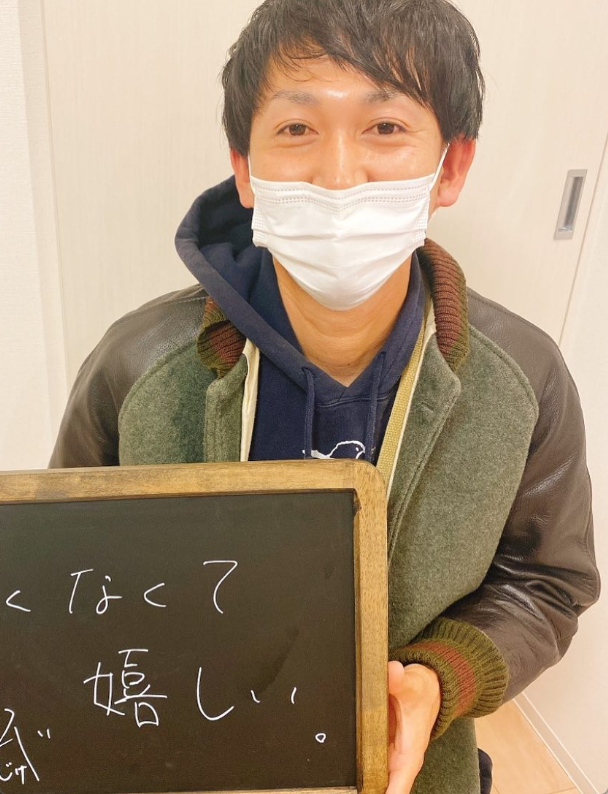 くなくて
嬉しい。